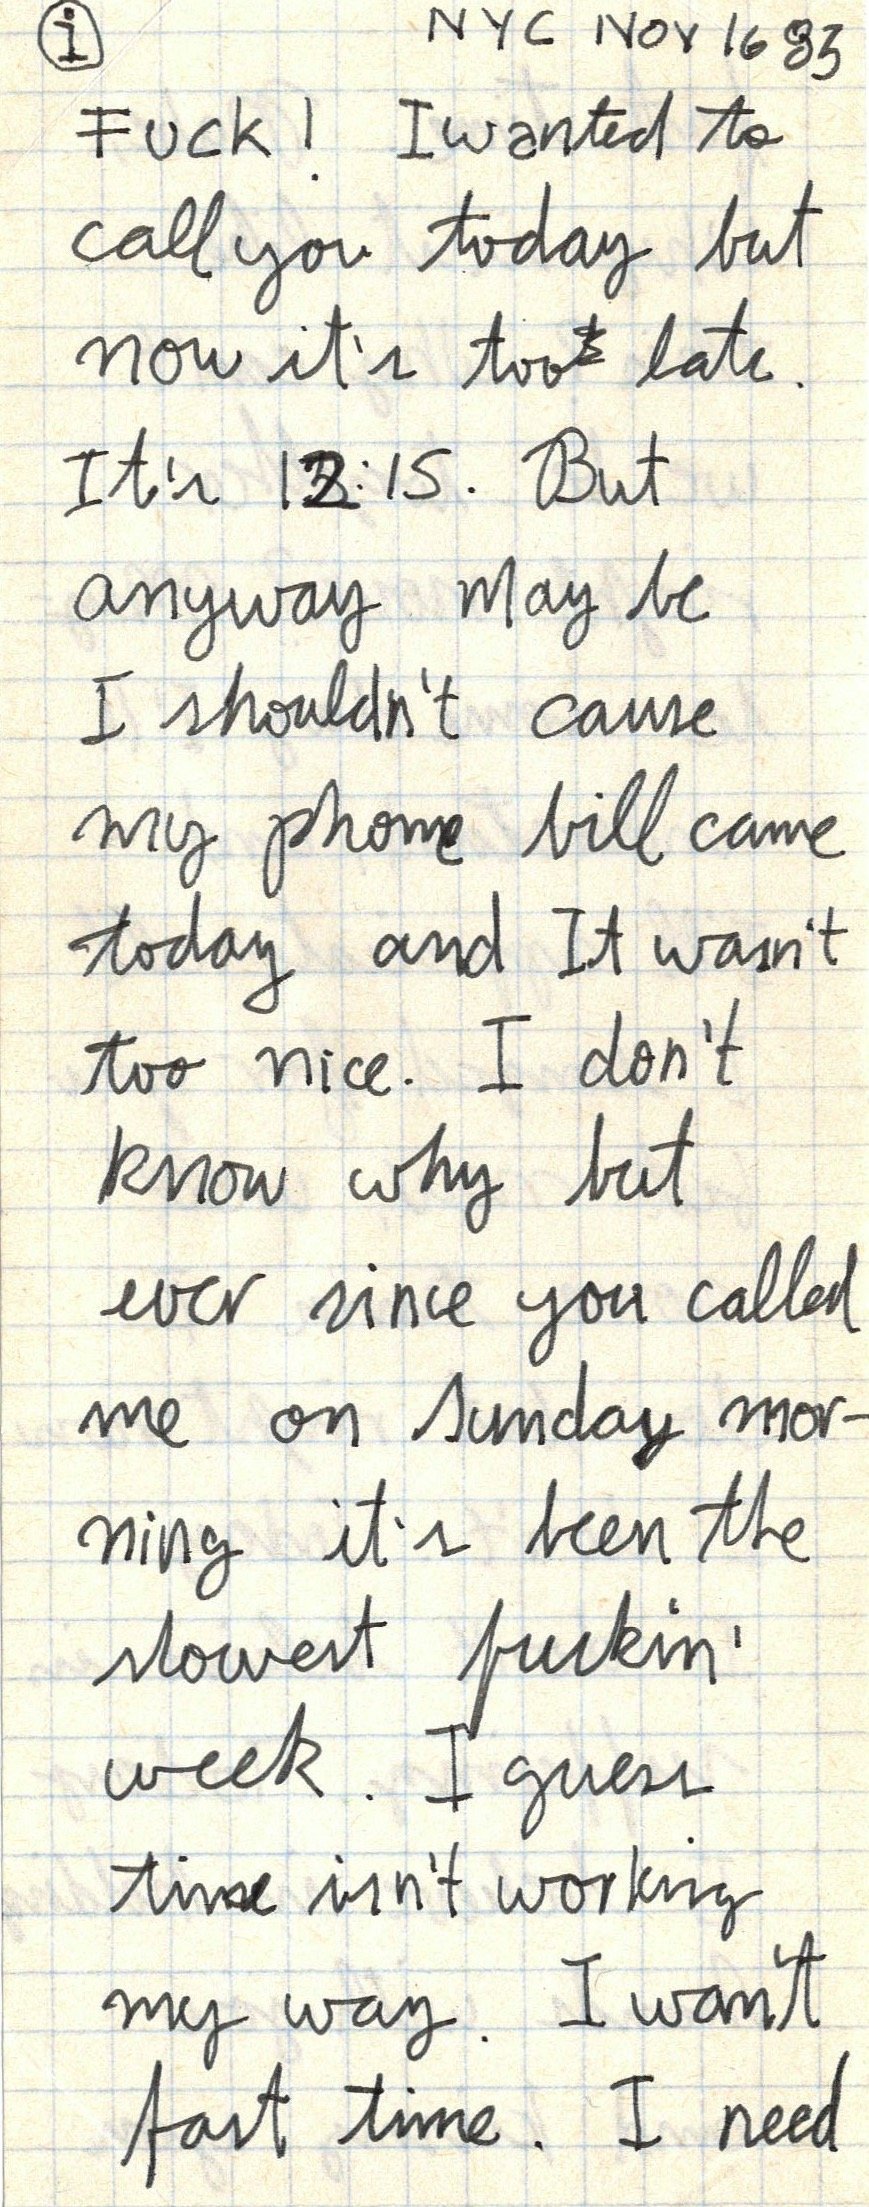 i NYC Nov 16 83
Fuck! I wanted to
call you today but
now it's too late.
It's 12:15. But
anyway may be
I shouldn't cause
my phone bill came
today and It wasn't
too nice. I don't
know why but
ever since you called
me on sunday mor-
ning it's been the
slowest fuckin'
week. I guess
time isn't working
my way. I wan't
fast time. I need